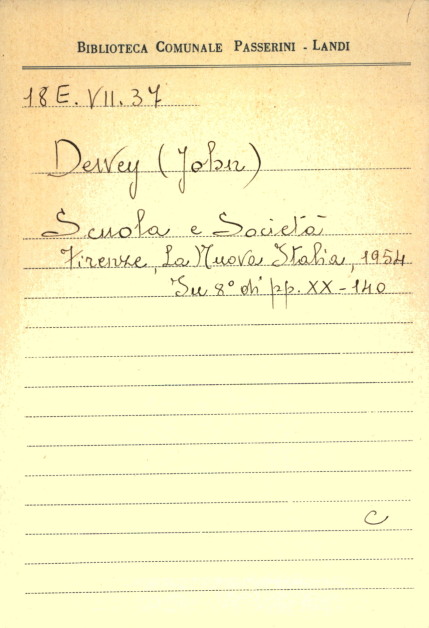 BIBLIOTECA COMUNALE PASSERINI - LANDI
18 E. VII. 37
Dewey (John)
Scuola e Società
Firenze, La Nuova Italia, 1954
In 8° di pp. XX - 140
C